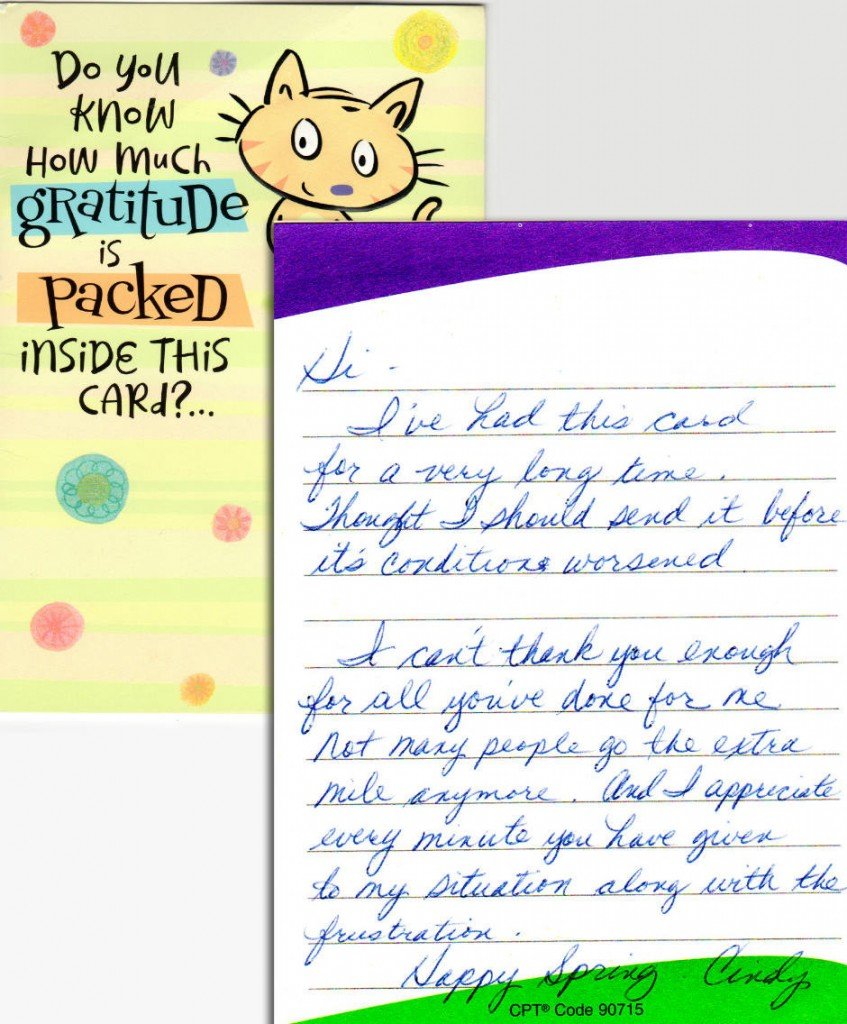 Do you
know
How much
gratitude
is
packed
inside this
card?...
Hi -
I've had this card
for a very long time.
Thought I should send it before
it's conditions worsened.
I can't thank you enough
for all you've done for me
not many people go the extra
mile anymore. And I appriciate
every minute you have given
to my situation along with the
frustration.
Happy Spring Cindy
CPT® Code 90715